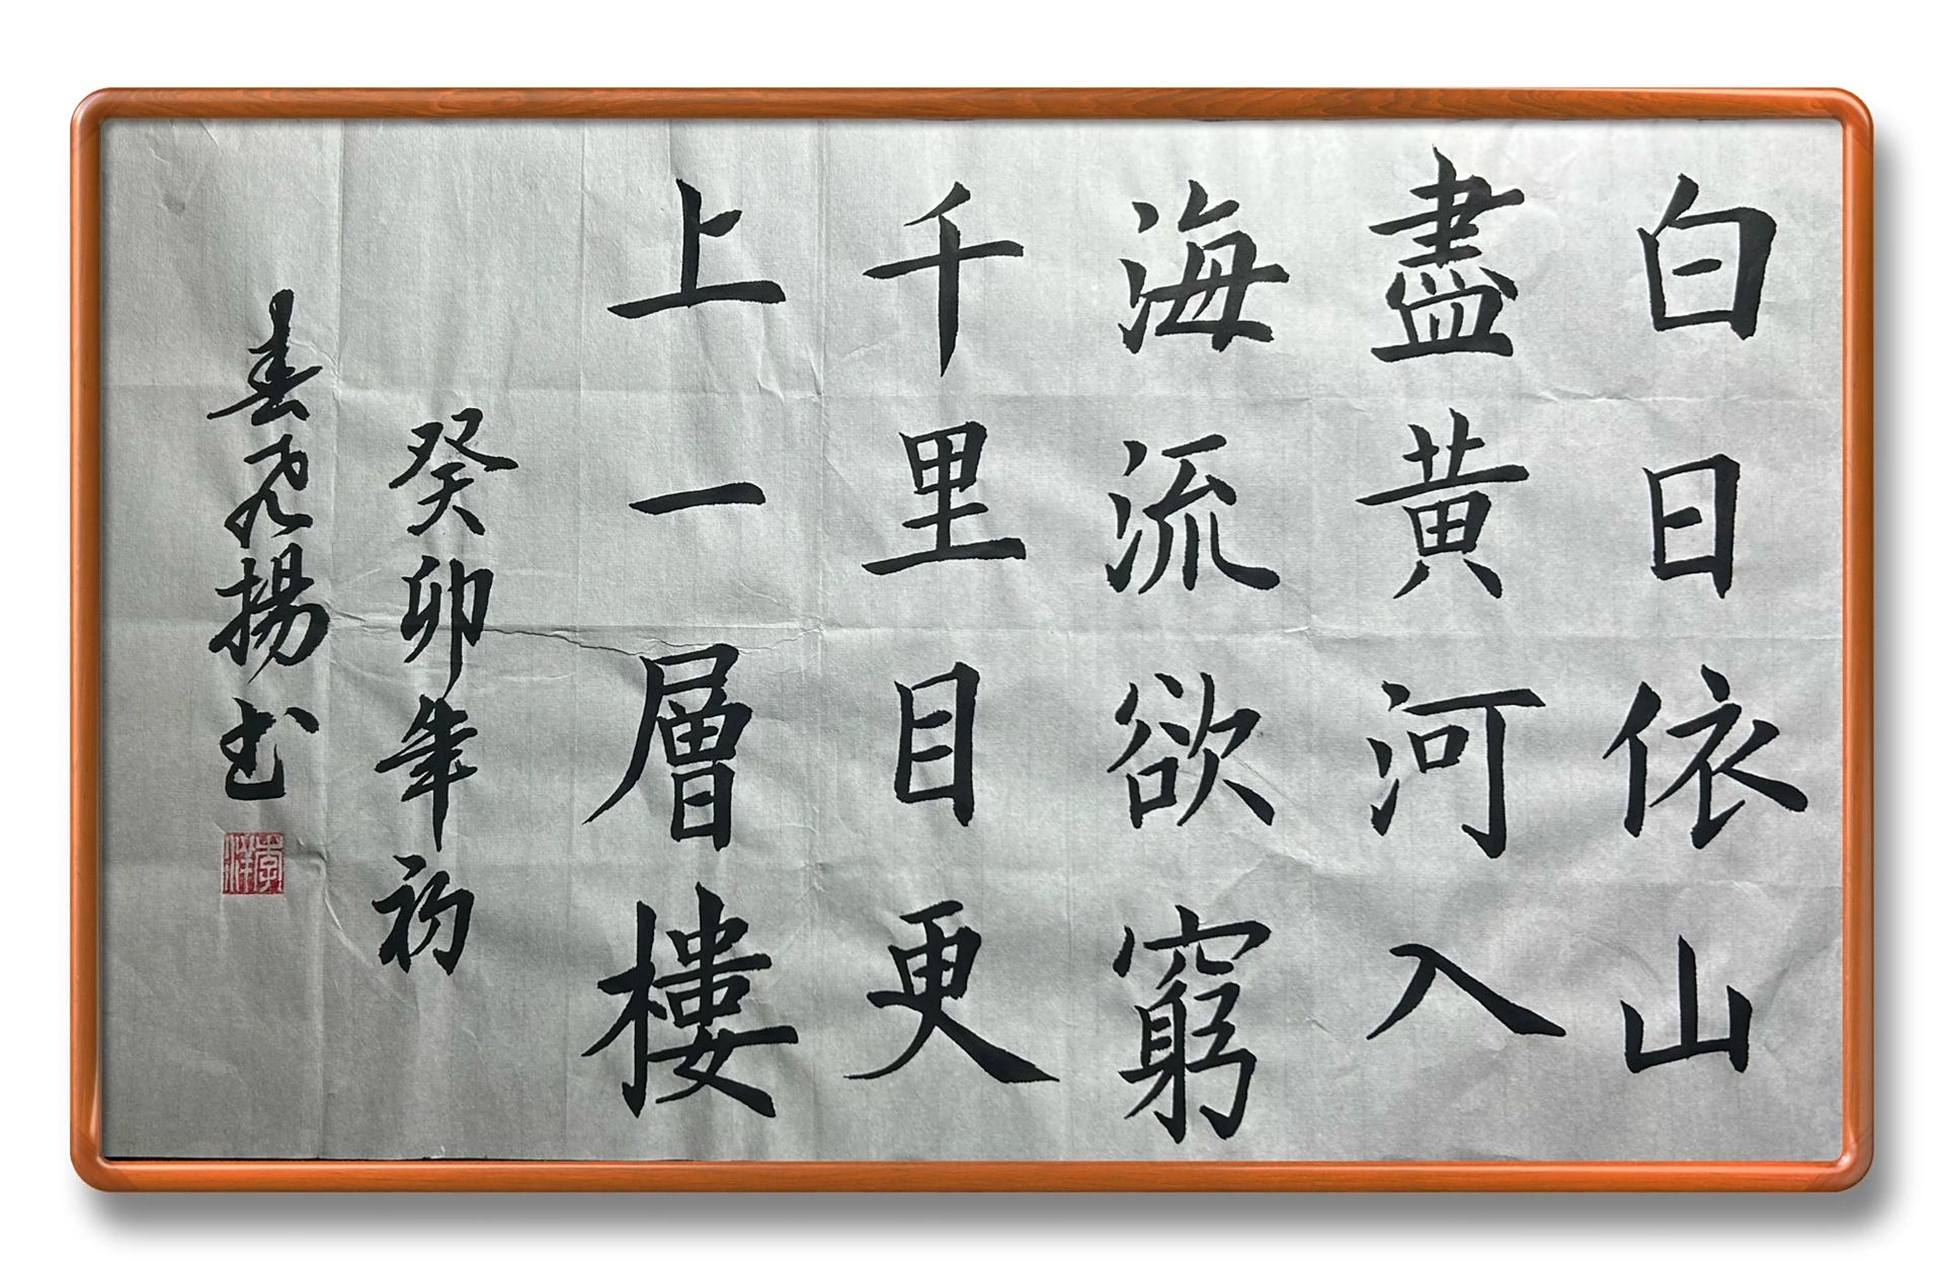 白日依山
盡黃河入
海流欲窮
千里目更
上一層樓
癸卯年初
揚書